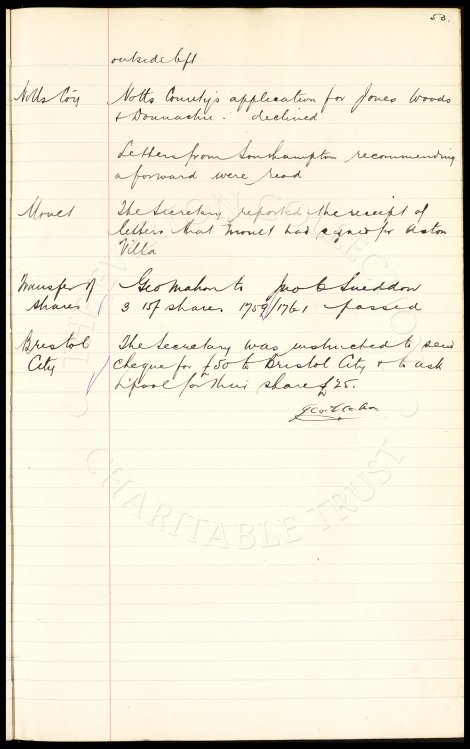 53.
outside left
Notts Coy Notts County's application for Jones Woods
& Donnachie. declined
Letters from Southampton recommending
a forward were read
Mount The Secretary reported the receipt of
letters that Mount had signed for Aston
Villa
Transfer of Geo Mahon to Jno C Sneddon
Shares 3 15/- shares 1759/1761 passed
Bristol The Secretary was instructed to send
City cheque for £50 to Bristol City & to ask
L'pool for their share £25.
Geo Mahon
THE EVERTON COLLECTION
CHARITABLE TRUST